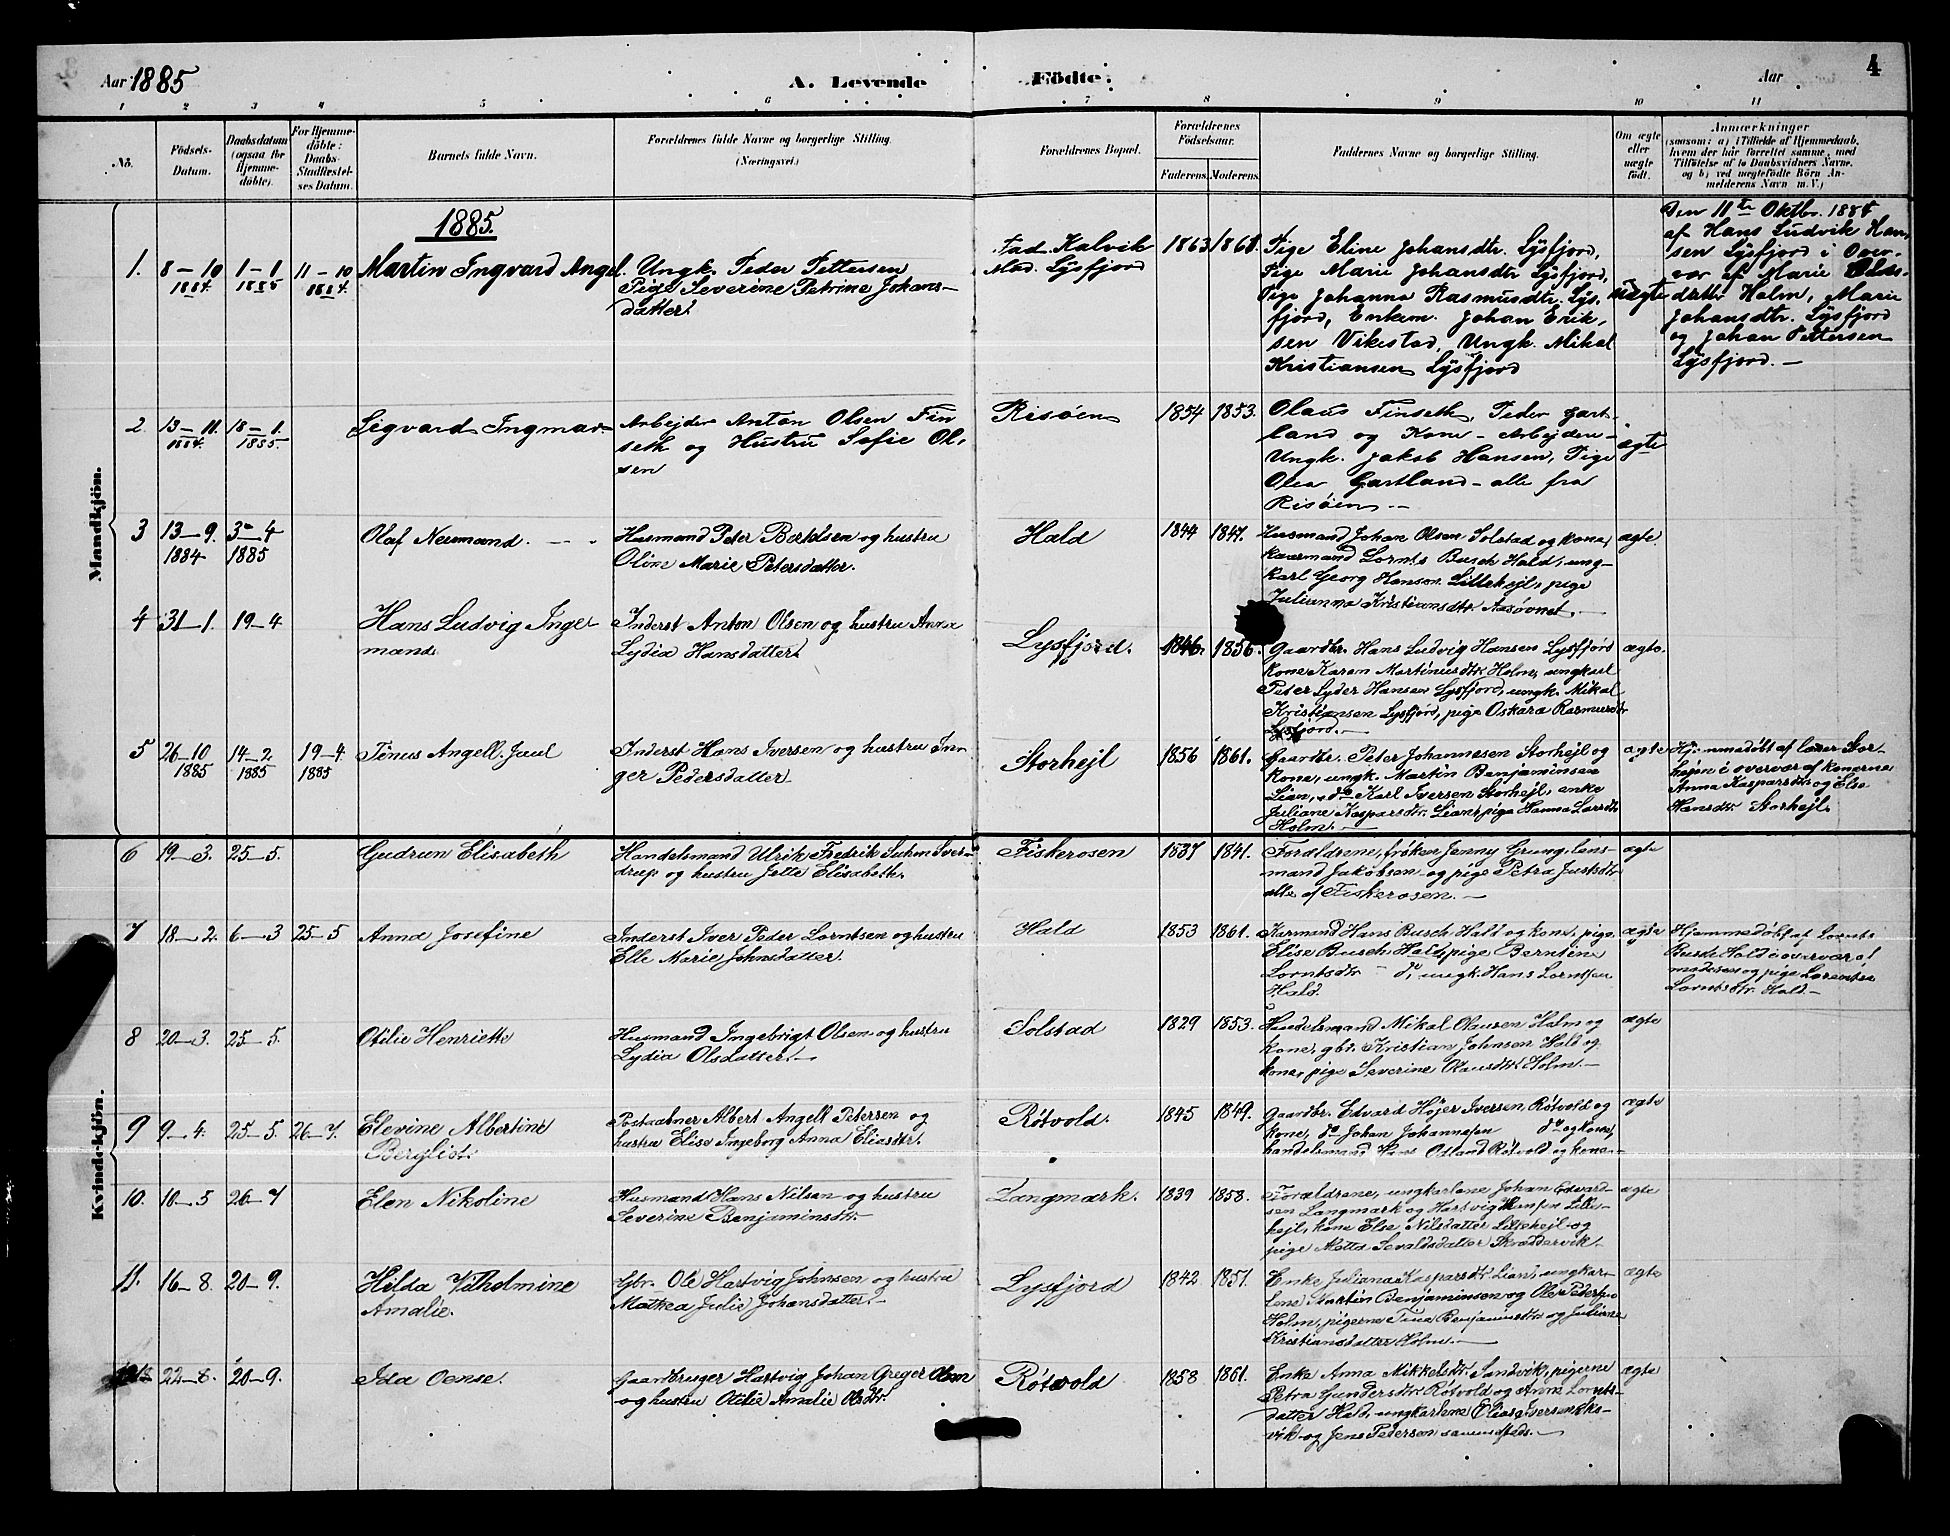 Aar 1885
A. Levende Födte.
Aar
4
1 2 3 4 5 6 7 8 9 10 11
No.
Födsels-Datum.
Daabsdatum (ogsaa for Hjemme-döbte).
For Hjemme-döbte: Daabs-Stadfæstel-ses Datum.
Barnets fulde Navn.
Forældrenes fulde Navne og borgerlige Stilling. (Næringsvei.)
Forældrenes Bopæl.
Forældrenes Fødselsaar.
Faderens. Moderens.
Faddernes Navne og borgerlige Stilling.
Om ægte eller uægte födt.
Anmærkninger
(saasom: a) i Tilfælde af Hjemmedaab, hvem der har forrettet samme, med Tilföielse af to Daabsvidners Navne, og b) ved uægtefödte Börn Anmelderens Navn m. V.)
Mandkjön.
1885.
1. 8-10 1884 1-1 1885 11-10 1884. Martin Ingvard Angel.
Ungk. Peder Pettersen
Pige Severine Petrine Johans-
datter.
Fad. Kalvik
Lysfjord
1863 1861.
Pige Eline Johansdtr. Lysfjord,
Pige Marie Johansdtr. Lysfjord,
Pige Johanna Rasmusdtr. Lys-
fjord, Enkem. Johan Erik-
sen Vikestad, Ungk. Mikal
Kristiansen Lysfjord
uægte
Den 11te Oktbr. 1884
af Hans Ludvik Han-
sen Lysfjord i Over-
vær af Marie
datter Holm, Marie
Johansdtr. Lysfjord
og Johan Pettersen
Lysfjord. —
2. 13-11. 1884. 18-1. 1885. Sigvard Ingmar
Arbejder Anton Olsen Fin-
seth og Hustru Sofie Ol-
sen
Risøen
1854 1853.
Olaus Finseth, Peder Gart-
land og Kone - Arbejdere -
Ungk. Jakob Hansen, Pige
Olea Gartland - alle fra
Risøen. -
ægte
3 13-9. 1884 3-4 1885 Olaf Neumand.
Husmand Peter Bertelsen og hustru
Oline Marie Petersdatter.
Hald
1844 1847.
Husmand Johan Olsen Solstad og kone,
kaarmand Lornts Busch Hald, ung-
karl Georg Hansen Lillehejl, pige
Julianna Kristiansdtr.
ægte.
4 31-1. 19-4 Hans Ludvig Inge
mand.
Inderst Anton Olsen og hustru Anna
Lydia Hansdatter.
Lysfjord.
1846. 1856.
Gaardbr. Hans Ludvig Hansen Lysfjord
kone Karen Martinusdtr. Holm, ungkarl
Peter Lyder Hansen Lysfjord, ungk. Mikal
Kristiansen Lysfjord, pige Oskara Rasmusdtr
Lysfjord. —
ægte.
5 26-10 1885 14-2. 1885 19-4. 1885 Tinus Angell Juul
Inderst Hans Iversen og hustru In-
ger Pedersdatter.
Storhejl
1856 1861.
Gaardbr. Peter Johannesen Storhejl og
kone, ungk. Martin Benjaminsen
Lian, do Karl Iversen Storhejl, enke
Juliane Kasparsdtr. Lian, pige Hanna Larsdtr.
Holm. —
ægte
Hjemmedøbt af lærer Stor-
i overvær af konerne
Anna Kasparsdtr. og Else
Hansdtr. Storhejl.
Kvindekjön.
6 19-3. 25-5. Gudrun Elisabeth
Handelsmand Ulrik Fredrik Suhm Sver-
drup og hustru Jette Elisabeth.
Fiskerosen
1837 1841.
Forældrene, frøken Jenny Grung, lens-
mand Jakobsen og pige Petra Justsdtr.
alle af Fiskerosen. —
ægte
7 18-2. 6-3 25-5 Anna Josefine
Inderst Iver Peder Lorntsen og hustru
Elle Marie Johnsdatter.
Hald
1853 1861.
Karmand Hans Busch Hald og kone, pige
Elise Busch Hald, pige Berntine
Lorntsdtr. - do, ungk. Hans Lorntsen
Hald.
ægte
Hjemmedøbt af Lornts
Buske Hald i overvær af
moderen og pige Lorentse
Lorntsdtr. Hald. -
8 20-3. 25-5. Otilie Henriette
Husmand Ingebrigt Olsen og hustru
Lydia Olsdatter. -
Solstad
1829 1853.
Handelsmand Mikal Olausen Holm og
kone, gbr. Kristian Johnsen Hald og
kone, pige Severine Olausdtr. Holm. -
ægte
9 9-4. 25-5. 26-7. Elevine Albertine
Bergliot.
Postaabner Albert Angell Petersen og
hustru Elise Ingeborg Anna Eliasdtr.
Røtvold.
1845 1849.
Gaardbr. Edvard Højer Iversen Røtvold og
kone, do Johan Johannesen do og kone,
handelsmand Hans Røtvold og kone. -
ægte
10. 10-5 26-7 Elen Nikoline
Husmand Hans Nilsen og hustru
Severine Benjaminsdtr.
Langmark.
1839 1858.
Forældrene, ungkarlene Johan Edvard-
sen Langmark og Hartvig Hansen Lille-
hejl, kone Else Nilsdatter Lillehejl og
pige Metta Sevaldsdatter Skreddervik. -
ægte
11. 16-8. 20-9. Hilda Vilhelmine
Amalie.
Gbr. Ole Hartvig Johnsen og hustru
Mathea Julie Johansdatter. -
Lysfjord
1842 1857.
Enke Juliana Kasparsdtr. Lian, ungkar-
lene Martin Benjaminsen og Ole Pedersen
Holm, pigerne Tina Benjaminsdtr. og Juliane
Kristiansdatter Holm. —
ægte
12 22-8. 20-9. Ida Oense.
Gaardbruger Hartvig Johan Greger Olsen
og hustru Otilie Amalie Olsdtr.
Røtvold
1858 1861.
Enke Anna Mikkelsdtr. Sandvik, pigerne
Petra Gundersdtr. Røtvold og Anne Lornts-
datter Hald, ungkarlene Elias Iversen
vik og Jens Pedersen sammesteds. -
ægte